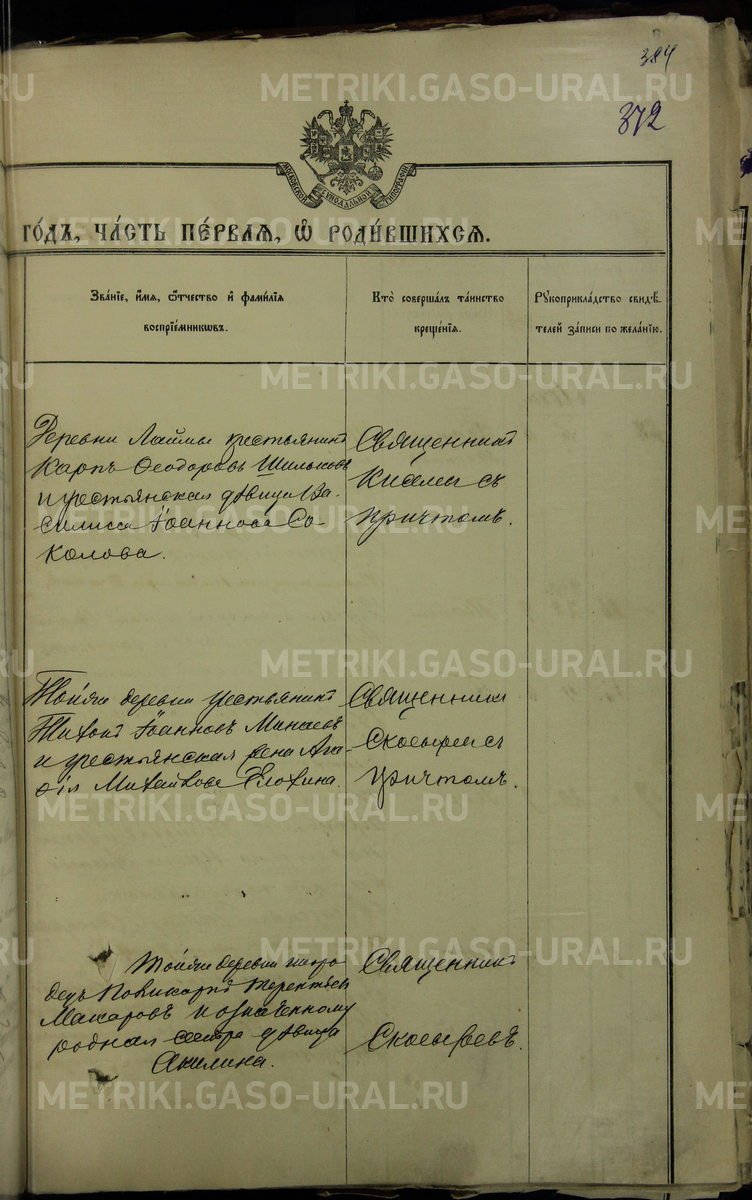 384
372
МОСКОВСКОЙ СѴНОДАЛЬНОЙ ТИПОГРАФІИ
ГО́ДЪ, ЧА́СТЬ ПЕ́РВАѦ, Ѽ РОДИ́ВШИХСѦ.
Зва́нїе, и́мѧ, ѻ҆́тчество и҆ фами́лїѧ
воспрїе́мникѡвъ.
Кто̀ соверша́лъ та́инство
креще́нїѧ.
Рꙋкоприкла́дство свидѣ́-
телей за́писи по жела́нїю.
Деревни Лаймы крестьянинъ
Карпъ Ѳеодоровъ Шильковъ
и крестьянская дѣвица Ва-
силиса Іоаннова Со-
колова.
Священникъ
съ
причтомъ.
Той же деревни крестьянинъ
Тихонъ Іоанновъ Минаевъ
и крестьянская жена Ага-
ѳія Михайлова Блохина.
Священникъ
Скосыревъ съ
причтомъ.
Той же деревни иноро-
децъ Поликарпъ Терентьев
Макаровъ и означенному
родная сестра дѣвица
Акилина.
Священникъ
Скосыревъ.
METRIKI.GASO-URAL.RU